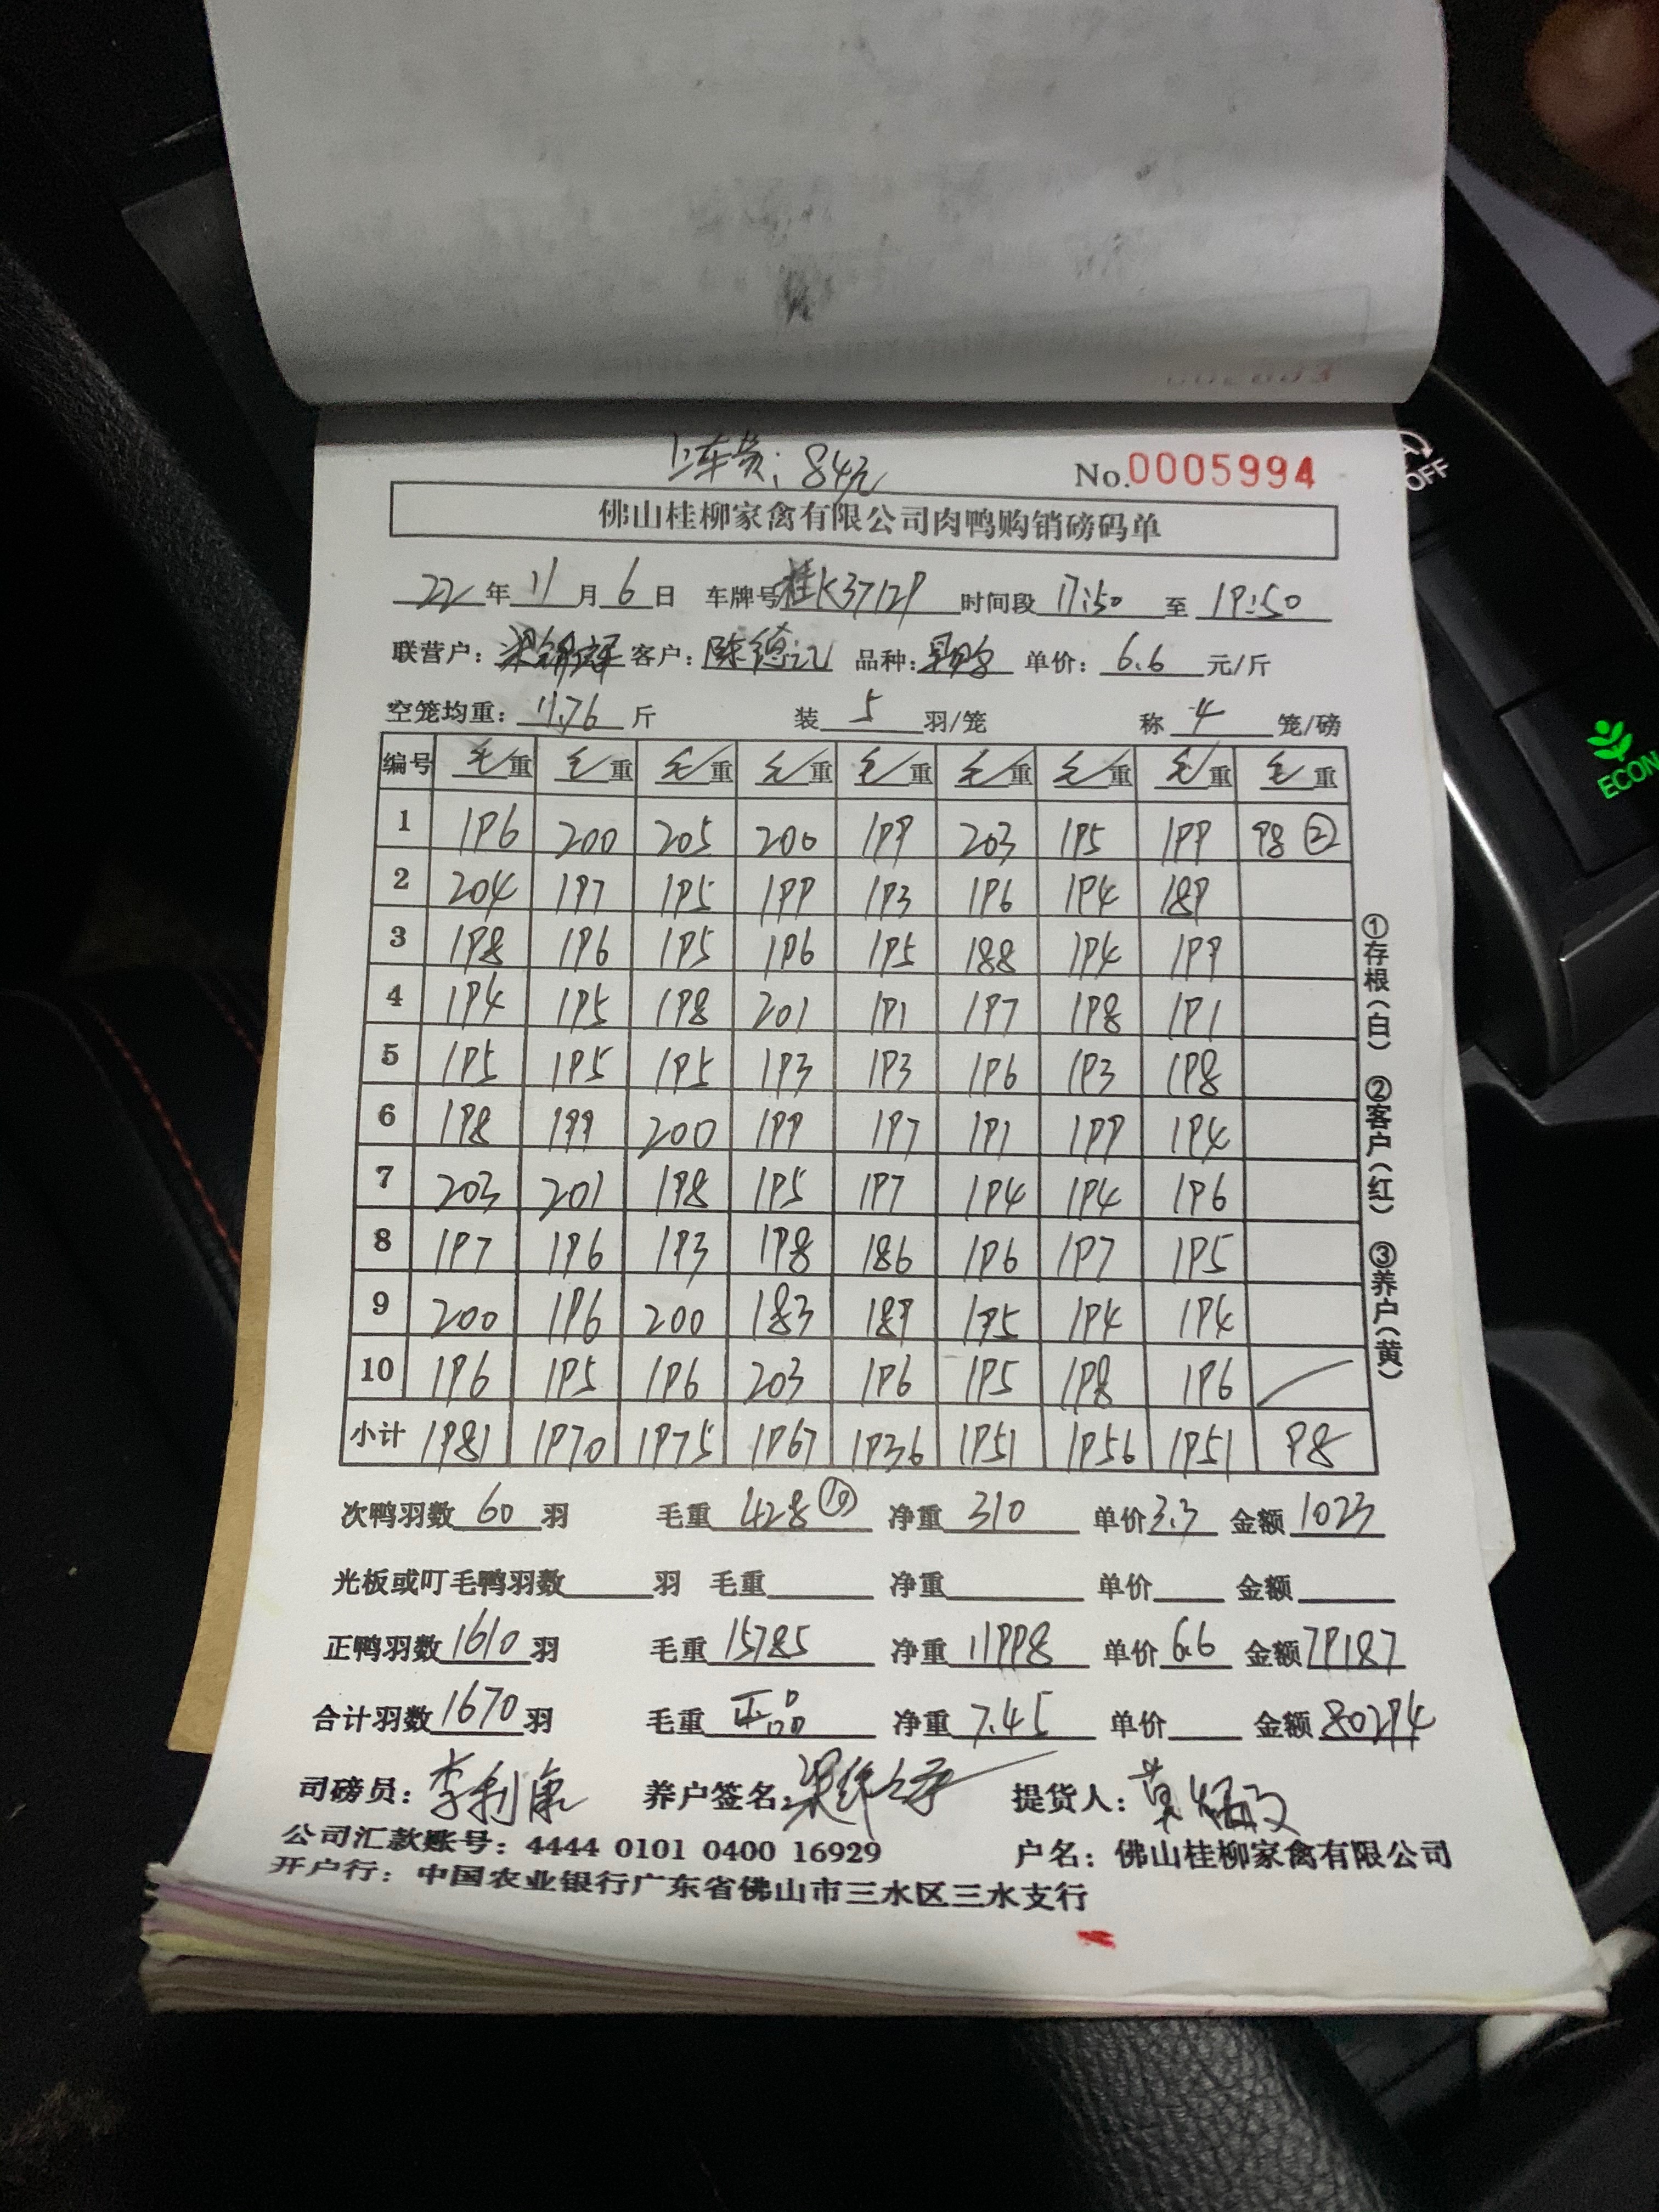 上车费:84元
No.0005994
佛山桂柳家禽有限公司肉鸭购销磅码单
22年11月6日 车牌号桂K37129 时间段17:50至19:50
联营户: 客户:陈德记 品种: 单价:6.6元/斤
空笼均重:11.76斤 装5羽/笼 称4笼/磅
编号 毛重 毛重 毛重 毛重 毛重 毛重 毛重 毛重 毛重
1 196 200 205 200 199 203 195 199 98 ②
2 204 197 195 199 193 196 194 189
3 198 196 195 196 195 188 194 199
4 194 195 198 201 191 197 198 191
5 195 195 195 193 193 196 193 198
6 198 199 200 199 197 191 199 194
7 203 201 198 195 197 194 194 196
8 197 196 193 198 186 196 197 195
9 200 196 200 183 189 195 194 194
10 196 195 196 203 196 195 198 196
小计 1981 1970 1975 1967 1936 1951 1956 1951 98
①存根(白) ②客户(红) ③养户(黄)
次鸭羽数60羽 毛重428⑩ 净重310 单价3.3 金额1023
光板或叮毛鸭羽数 羽 毛重 净重 单价 金额
正鸭羽数1610羽 毛重15785 净重11998 单价6.6 金额79187
合计羽数1670羽 毛重正品 净重7.45 单价 金额80294
司磅员:李利康 养户签名: 提货人:
公司汇款账号:4444 0101 0400 16929 户名:佛山桂柳家禽有限公司
开户行:中国农业银行广东省佛山市三水区三水支行
OFF
ECON